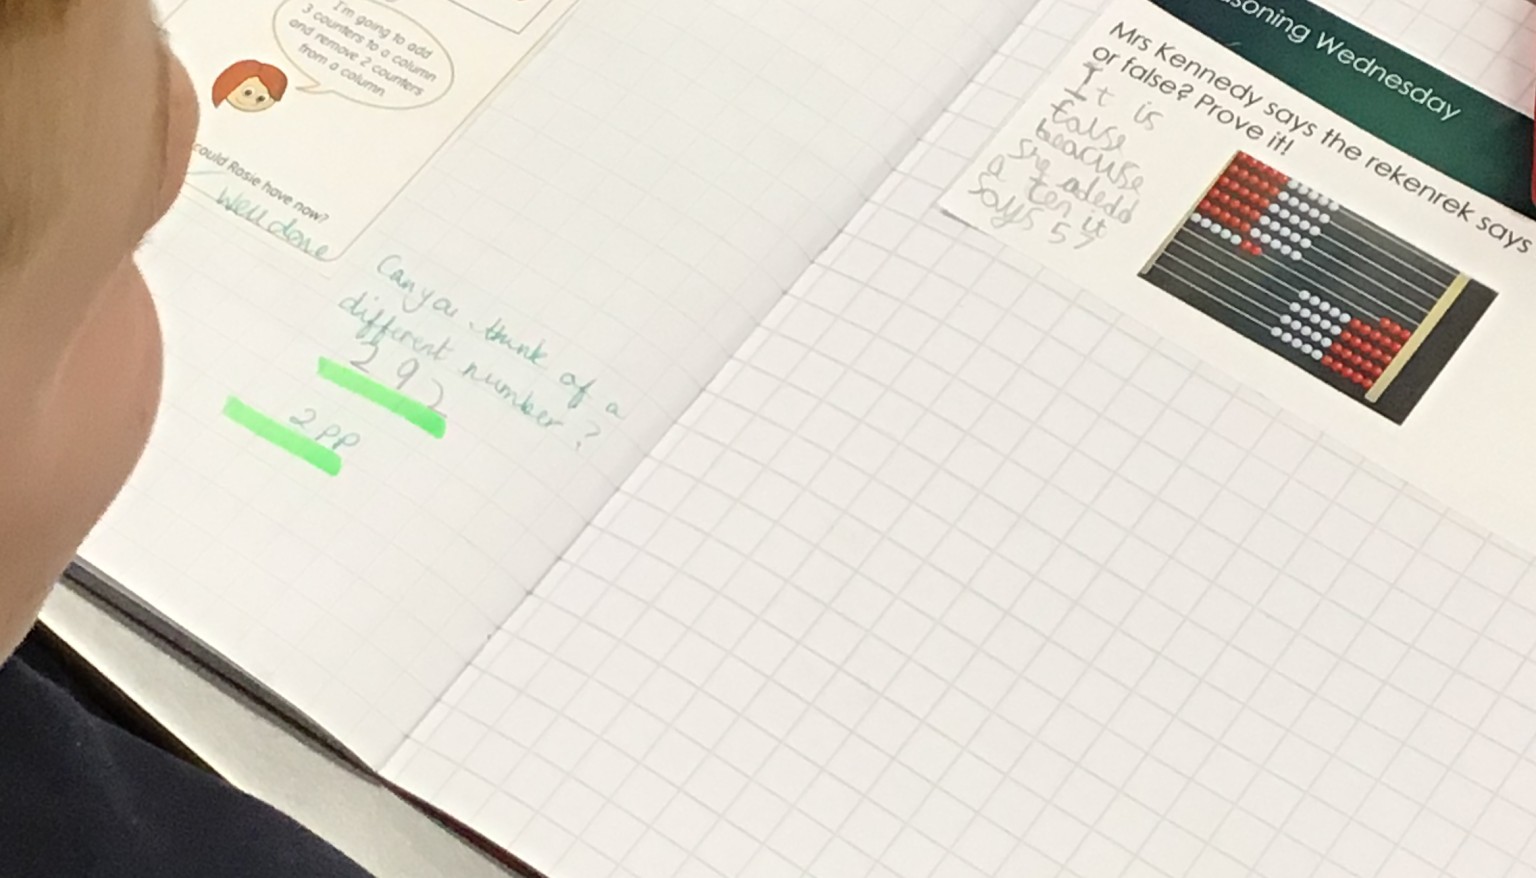 I'm going to add
3 counters to a column
and remove 2 counters
from a column
could Rosie have now?
Well done
Can you think of a
different number?
2 9
2 pp
soning Wednesday
Mrs Kennedy says the rekenrek says
or false? Prove it!
It is
false
beacuse
she adedd
a ten it
says 57